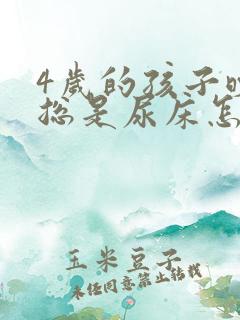 4岁的孩子
总是尿床怎
玉米豆子
未经同意禁止转载